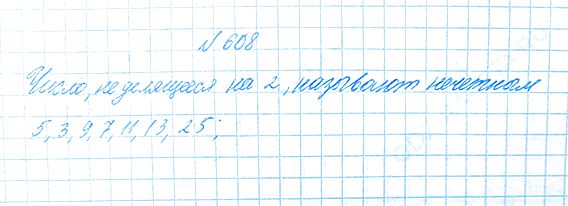 № 608
Число, не делящееся на 2, называют нечетном
5, 3, 9, 7, 11, 13, 25;